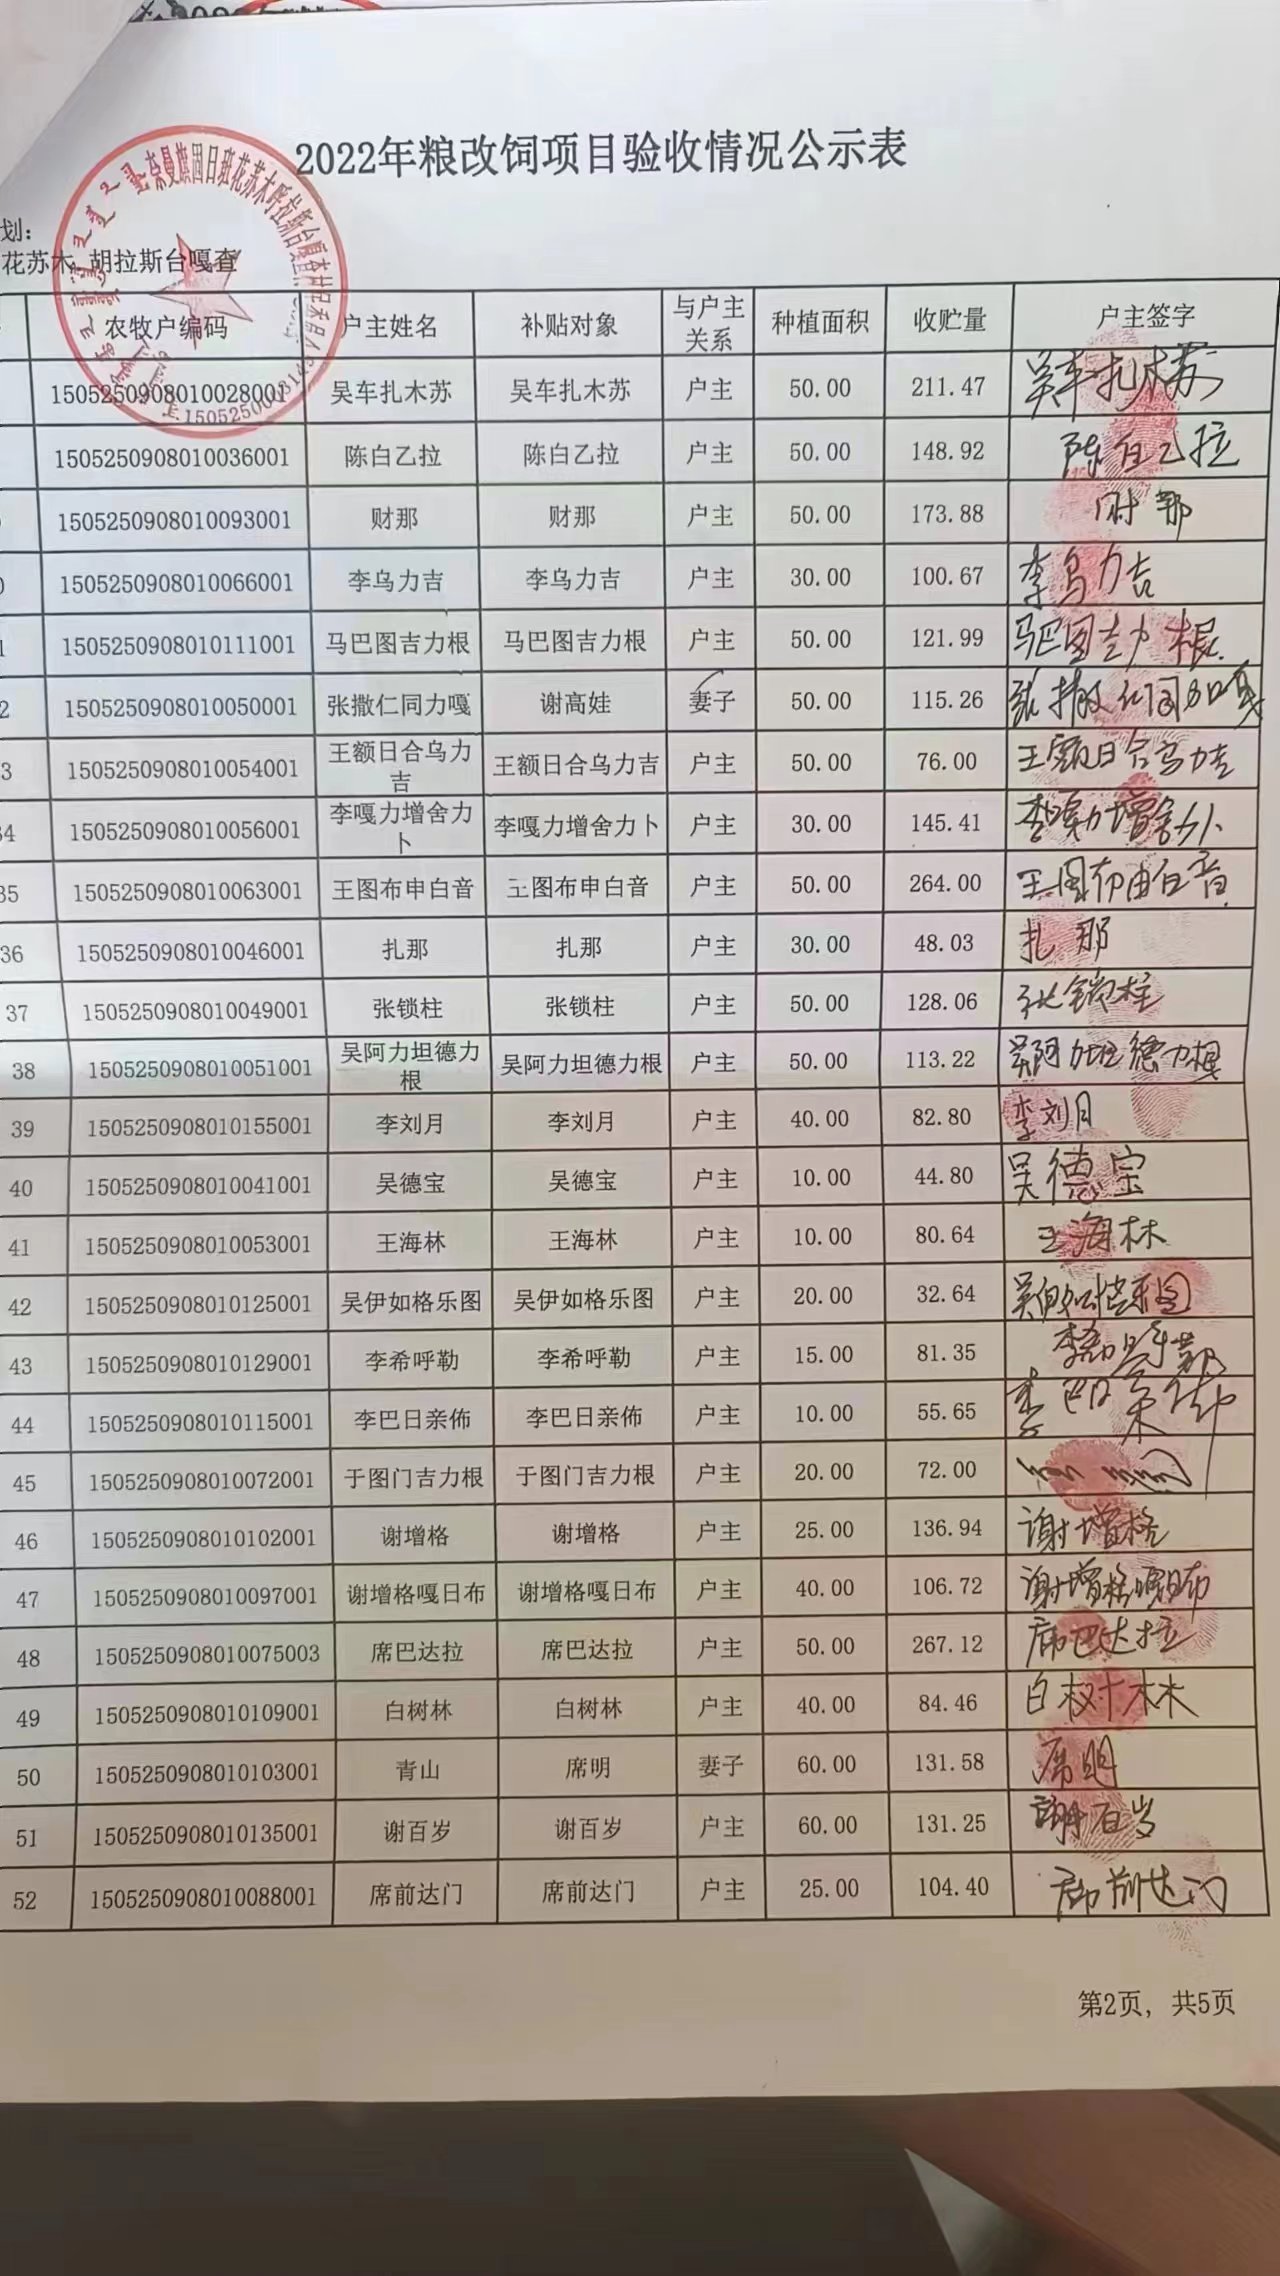 2022年粮改饲项目验收情况公示表
划：
花苏木 胡拉斯台嘎查
农牧户编码 户主姓名 补贴对象 与户主关系 种植面积 收贮量 户主签字
1505250908010028001 吴车扎木苏 吴车扎木苏 户主 50.00 211.47 吴车扎木苏
1505250908010036001 陈白乙拉 陈白乙拉 户主 50.00 148.92 陈白乙拉
1505250908010093001 财那 财那 户主 50.00 173.88 财那
0 1505250908010066001 李乌力吉 李乌力吉 户主 30.00 100.67 李乌力吉
1 1505250908010111001 马巴图吉力根 马巴图吉力根 户主 50.00 121.99 马巴图吉力根
2 1505250908010050001 张撒仁同力嘎 谢高娃 妻子 50.00 115.26 张撒仁同力嘎
3 1505250908010054001 王额日合乌力吉 王额日合乌力吉 户主 50.00 76.00 王额日合乌力吉
34 1505250908010056001 李嘎力增舍力卜 李嘎力增舍力卜 户主 30.00 145.41 李嘎力增舍力卜
35 1505250908010063001 王图布申白音 王图布申白音 户主 50.00 264.00 王图布申白音
36 1505250908010046001 扎那 扎那 户主 30.00 48.03 扎那
37 1505250908010049001 张锁柱 张锁柱 户主 50.00 128.06 张锁柱
38 1505250908010051001 吴阿力坦德力根 吴阿力坦德力根 户主 50.00 113.22 吴阿力坦德力根
39 1505250908010155001 李刘月 李刘月 户主 40.00 82.80 李刘月
40 1505250908010041001 吴德宝 吴德宝 户主 10.00 44.80 吴德宝
41 1505250908010053001 王海林 王海林 户主 10.00 80.64 王海林
42 1505250908010125001 吴伊如格乐图 吴伊如格乐图 户主 20.00 32.64 吴伊如格乐图
43 1505250908010129001 李希呼勒 李希呼勒 户主 15.00 81.35
44 1505250908010115001 李巴日亲佈 李巴日亲佈 户主 10.00 55.65 李巴日亲佈
45 1505250908010072001 于图门吉力根 于图门吉力根 户主 20.00 72.00
46 1505250908010102001 谢增格 谢增格 户主 25.00 136.94 谢增格
47 1505250908010097001 谢增格嘎日布 谢增格嘎日布 户主 40.00 106.72 谢增格嘎日布
48 1505250908010075003 席巴达拉 席巴达拉 户主 50.00 267.12 席巴达拉
49 1505250908010109001 白树林 白树林 户主 40.00 84.46 白树林
50 1505250908010103001 青山 席明 妻子 60.00 131.58 席明
51 1505250908010135001 谢百岁 谢百岁 户主 60.00 131.25 谢百岁
52 1505250908010088001 席前达门 席前达门 户主 25.00 104.40 席前达门
第2页，共5页